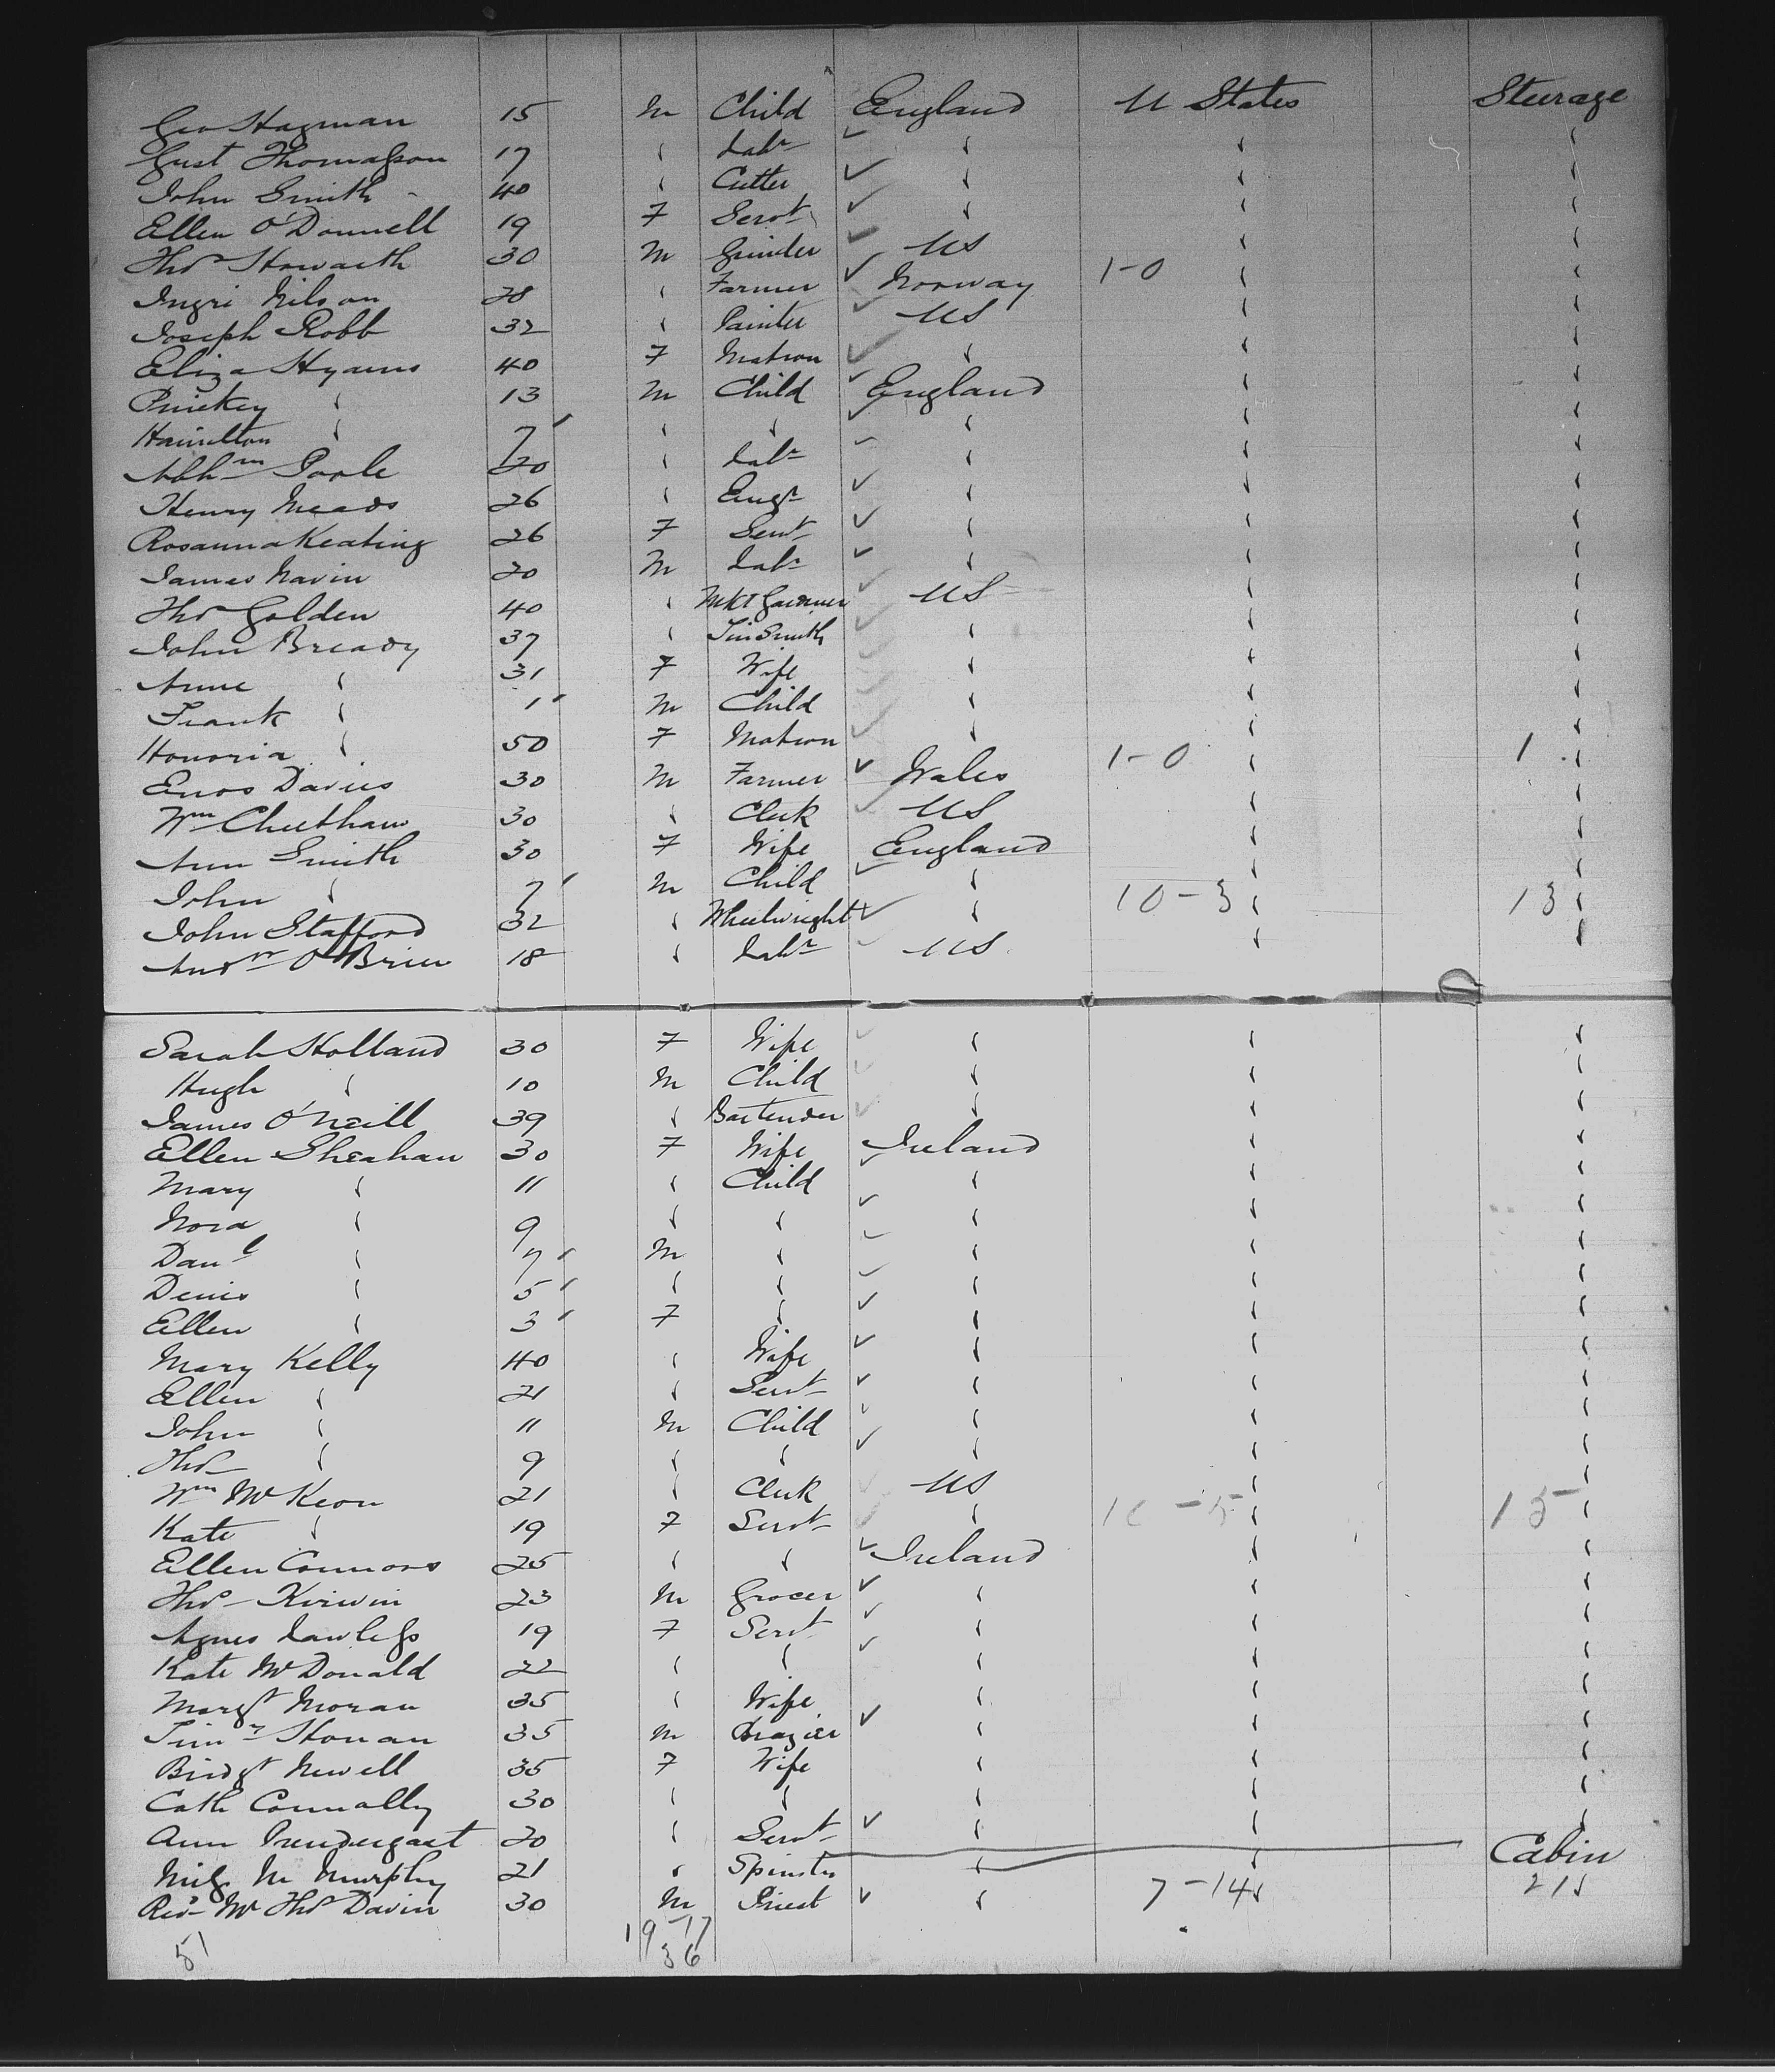 Geo Hagman 15 M Child England U States Steerage
Gust Thomasson 17 " Labr " " "
John Smith 40 " Cutter " " "
Ellen O'Donnell 19 F Servt " " "
Thos Howarth 30 M Grinder US " "
Ingri Nilson 28 " Farmer Norway 1-0 " "
Joseph Robb 32 " Painter US " "
Eliza Hyams 40 F Matron " " "
" 13 M Child England " "
Hamilton " 7 " " " " "
Abhm Poole 20 " Labr " " "
Henry Meads 26 " Engr " " "
Rosanna Keating 26 F Servt " " "
James Navin 20 M Labr " " "
Thos Golden 40 " Mkt Gardner US " "
John Bready 37 " TinSmith " " "
Anne " 31 F Wife " " "
Frank " 1 M Child " " "
Honoria " 50 F Matron " " "
Enos Davies 30 M Farmer Wales 1-0 " 1 "
Wm Cheetham 30 " Clerk US " "
Ann Smith 30 F Wife England " "
John " 7 M Child " " "
John Stafford 32 " Wheelwright " 10-3 " 13 "
Andrw O'Brien 18 " Labr US " "
Sarah Holland 30 F Wife " " "
Hugh " 10 M Child " " "
James O'Neill 39 " Bartender " " "
Ellen Sheahan 30 F Wife Ireland " "
Mary " 11 " Child " " "
Nora " 9 " " " " "
Danl " 7 M " " " "
Denis " 5 " " " " "
Ellen " 3 F " " " "
Mary Kelly 40 " Wife " " "
Ellen " 21 " Servt " " "
John " 11 M Child " " "
Thos " 9 " " " " "
Wm McKeon 21 " Clerk US " "
Kate " 19 F Servt " 10-5 " 15 "
Ellen Connors 25 " " Ireland " "
Thos Kirwin 23 M Grocer " " "
Agnes Lawless 19 F Servt " " "
Kate McDonald 22 " " " " "
Margt Moran 35 " Wife " " "
Timy Honan 35 M Grazier " " "
Bridgt Newell 35 F Wife " " "
Cath Connally 30 " " " " "
Ann Prendergast 20 " Servt " " "
M Murphy 21 " Spinster " " Cabin
Revd Mr Thos Davin 30 M Priest " 7-14 " 21 "
51 19-17
36